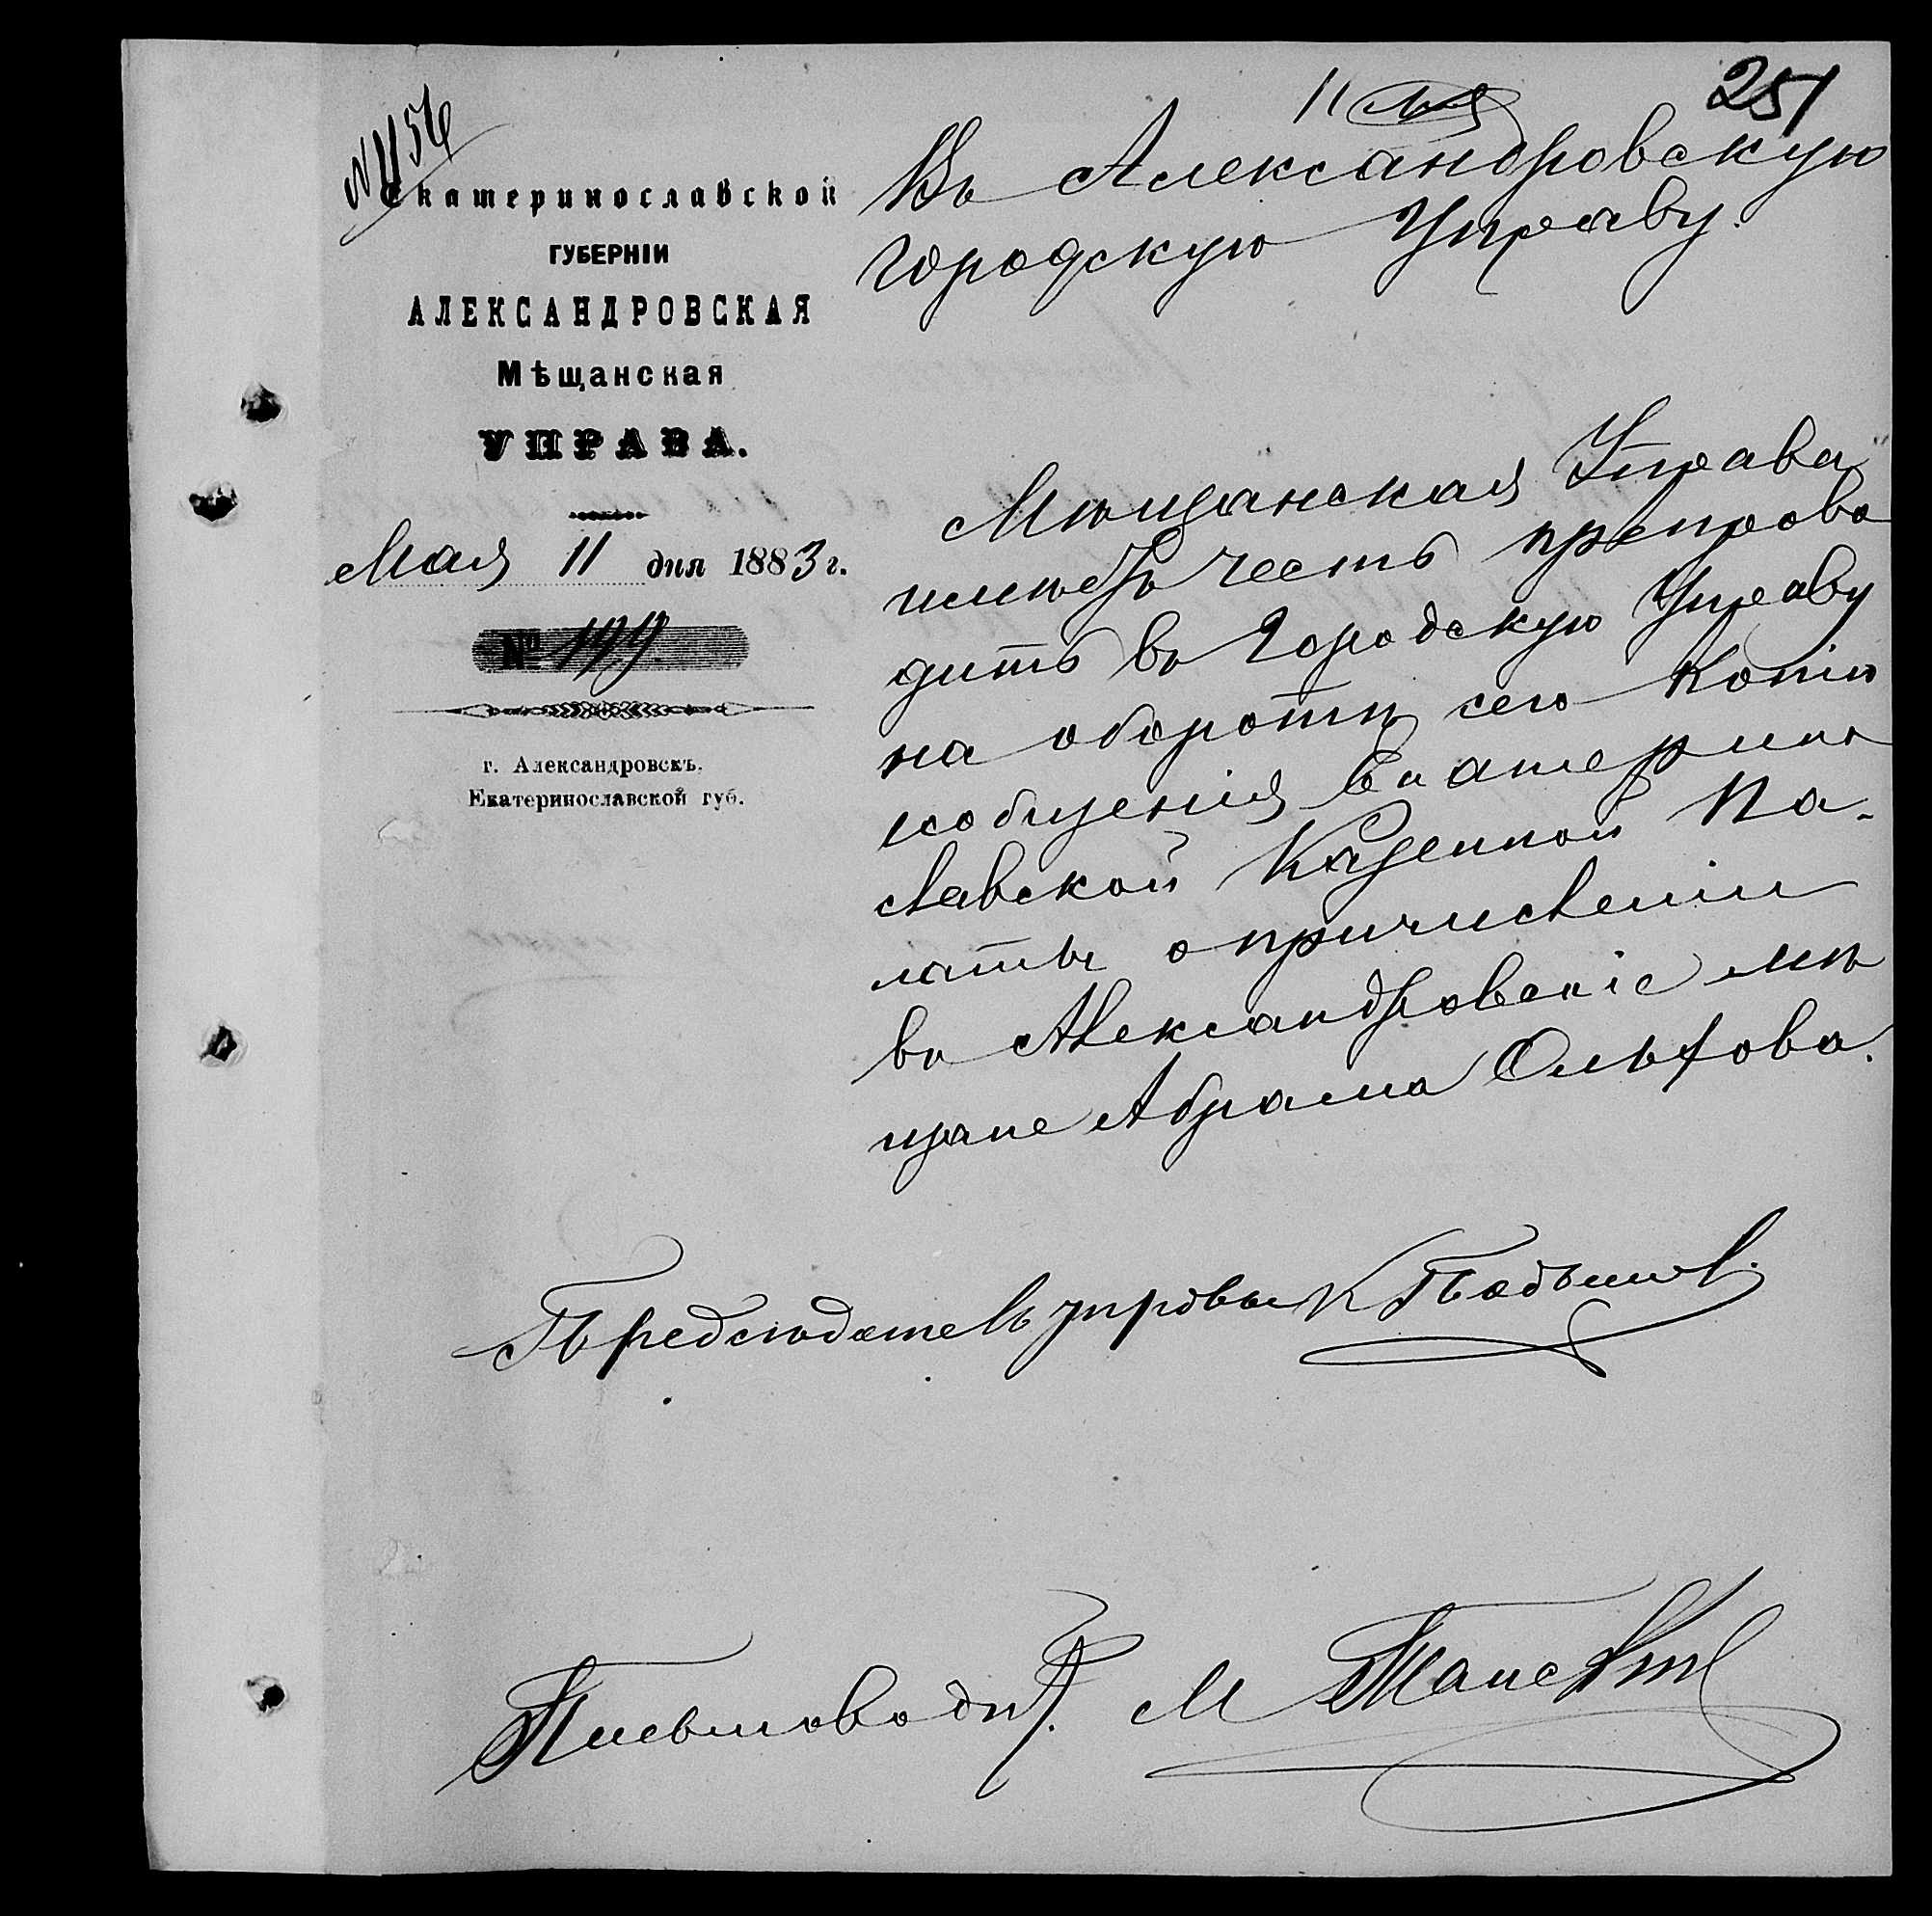 251
11 мая
№ 1154
Екатеринославской
ГУБЕРНІИ
АЛЕКСАНДРОВСКАЯ
Мѣщанская
УПРАВА.
Мая 11 дня 1883 г.
№ 199.
г. Александровскъ,
Екатеринославской губ.
Въ Александровскую
Городскую Управу.
Мѣщанская Управа
имѣетъ честь препрово
дить въ Городскую Управу
на оборотѣ сего Копію
сообщенія Екатерино
славской Казенной Па-
латы о причисленіи
въ Александровскіе мѣ
щане Абрама
Председатель управы К
Письмоводит. М